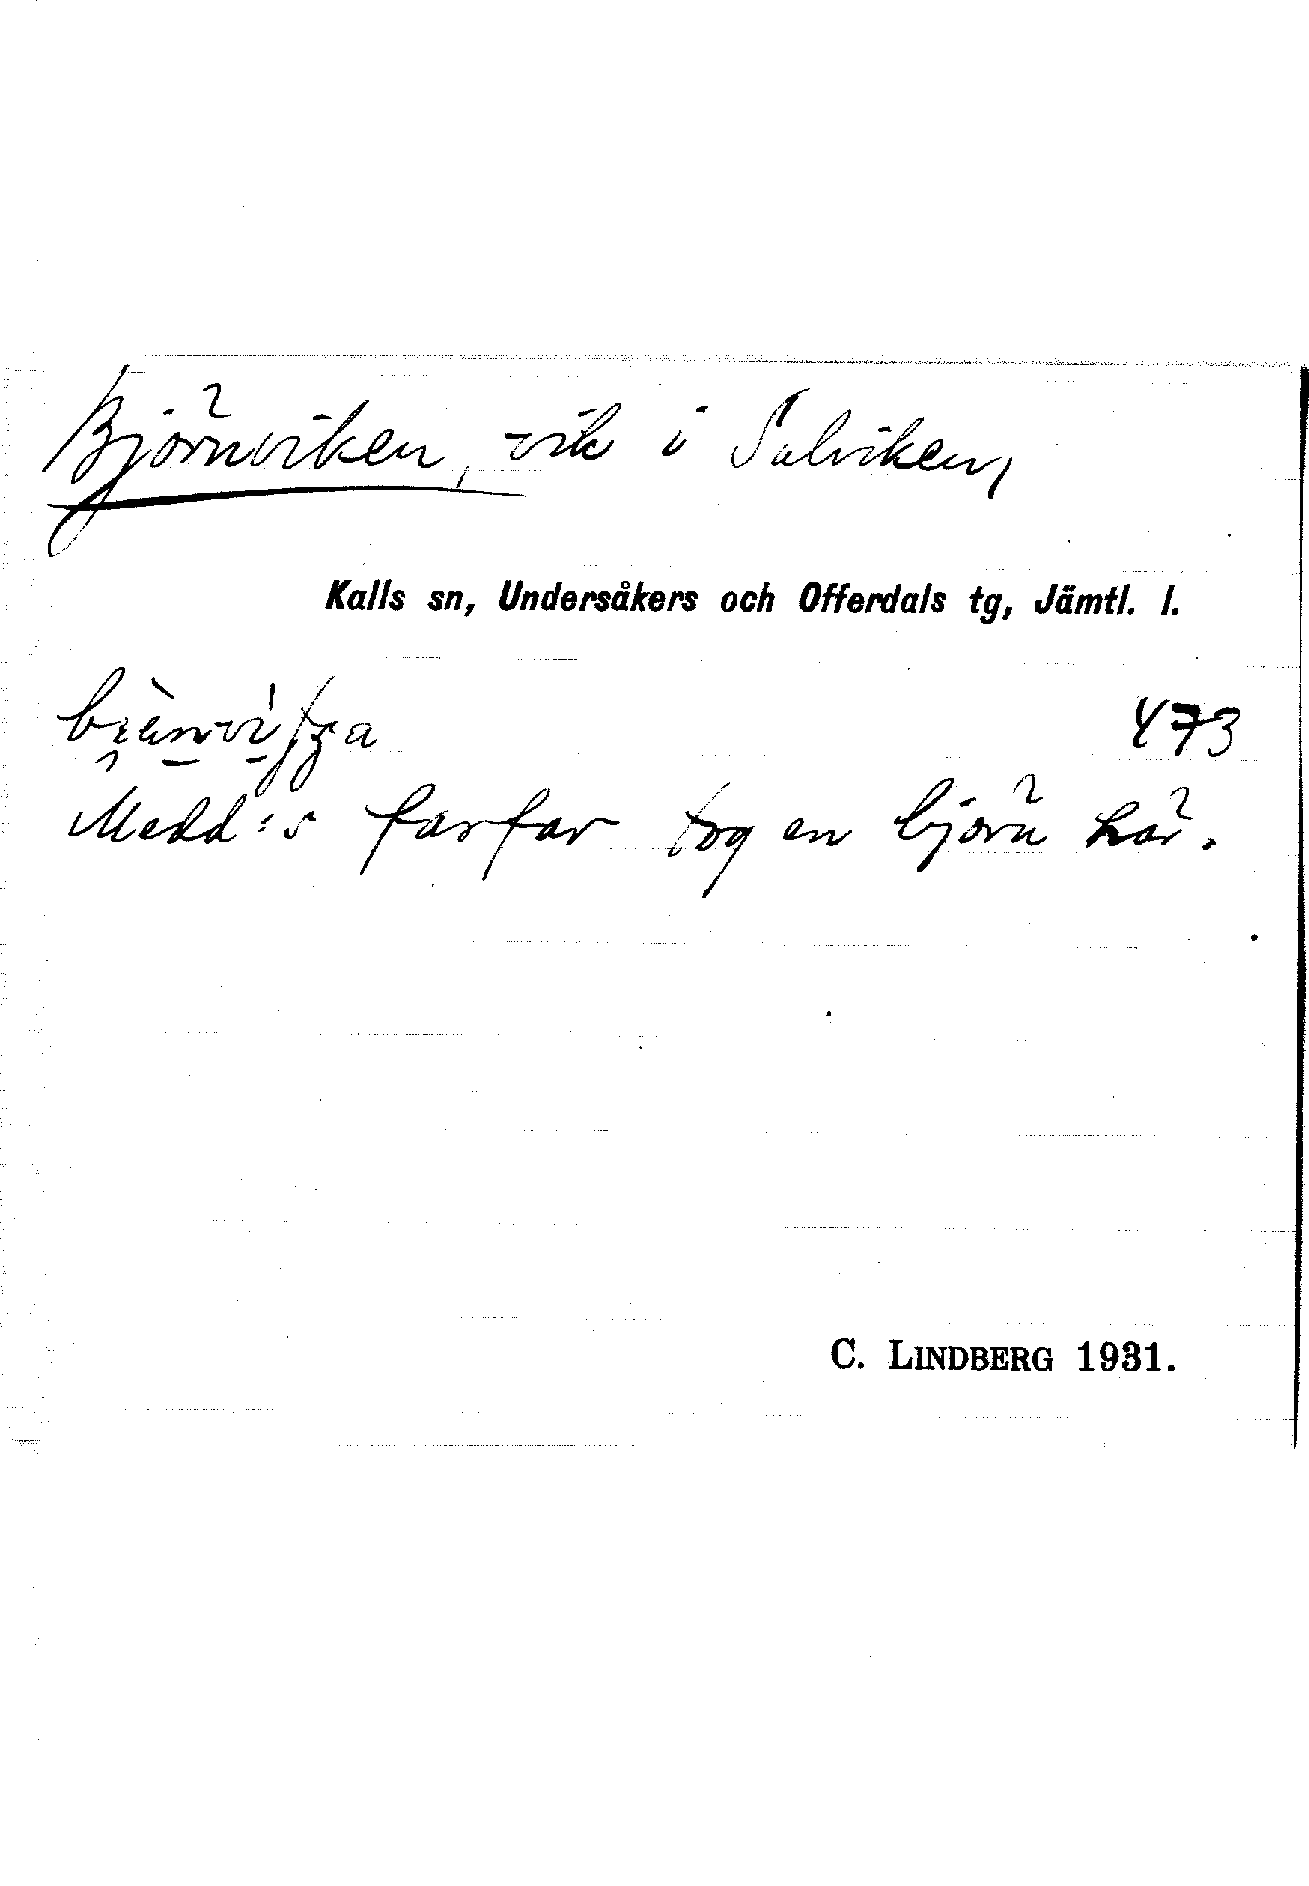 Björnviken, vik i Salviken,
Kalls sn, Undersåkers och Offerdals tg, Jämtl. l.
473
Medd:s farfar tog en björn här.
C. LINDBERG 1931.